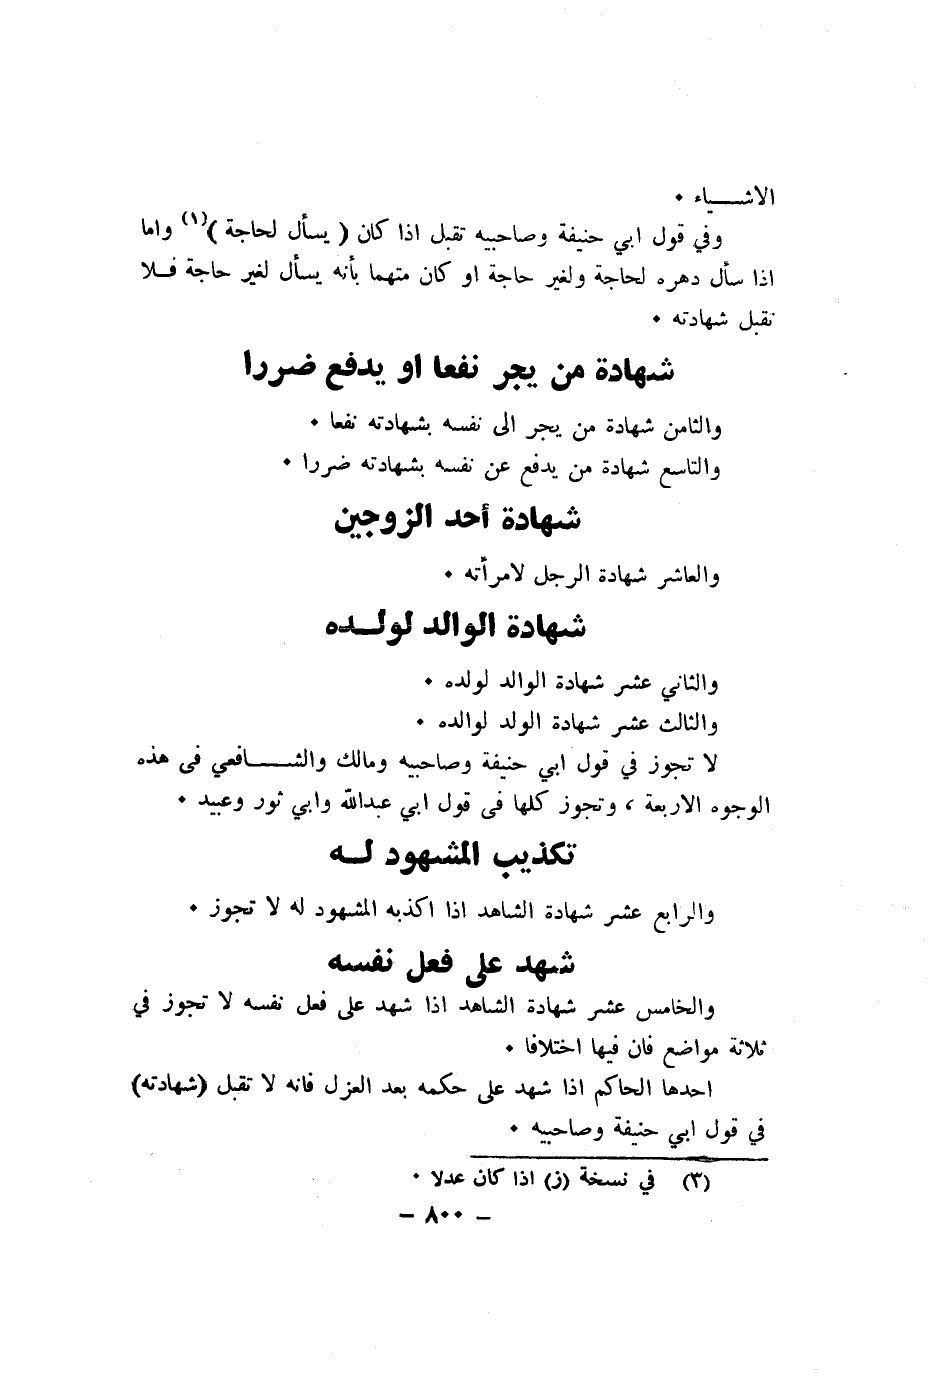 الاشـــياء ٠
وفي قول ابي حنيفة وصاحبيه تقبل اذا كان ( يسأل لحاجة )(١) واما
اذا سأل دهره لحاجة ولغير حاجة او كان متهما بأنه يسأل لغير حاجة فـلا
تقبل شهادته ٠
شهادة من يجر نفعا او يدفع ضررا
والثامن شهادة من يجر الى نفسه بشهادته نفعا ٠
والتاسع شهادة من يدفع عن نفسه بشهادته ضررا ٠
شهادة أحد الزوجين
والعاشر شهادة الرجل لامرأته ٠
شهادة الوالد لولـده
والثاني عشر شهادة الوالد لولده ٠
والثالث عشر شهادة الولد لوالده ٠
لا تجوز في قول ابي حنيفة وصاحبيه ومالك والشـــافعي فى هذه
الوجوه الاربعة ، وتجوز كلها فى قول ابي عبدالله وابي ثور وعبيد ٠
تكذيب المشهود لـه
والرابع عشر شهادة الشاهد اذا اكذبه المشهود له لا تجوز ٠
شهد على فعل نفسه
والخامس عشر شهادة الشاهد اذا شهد على فعل نفسه لا تجوز في
ثلاثة مواضع فان فيها اختلافا ٠
احدها الحاكم اذا شهد على حكمه بعد العزل فانه لا تقبل (شهادته)
في قول ابي حنيفة وصاحبيه ٠
(٣) في نسخة (ز) اذا كان عدلا ٠
– ٨٠٠ –